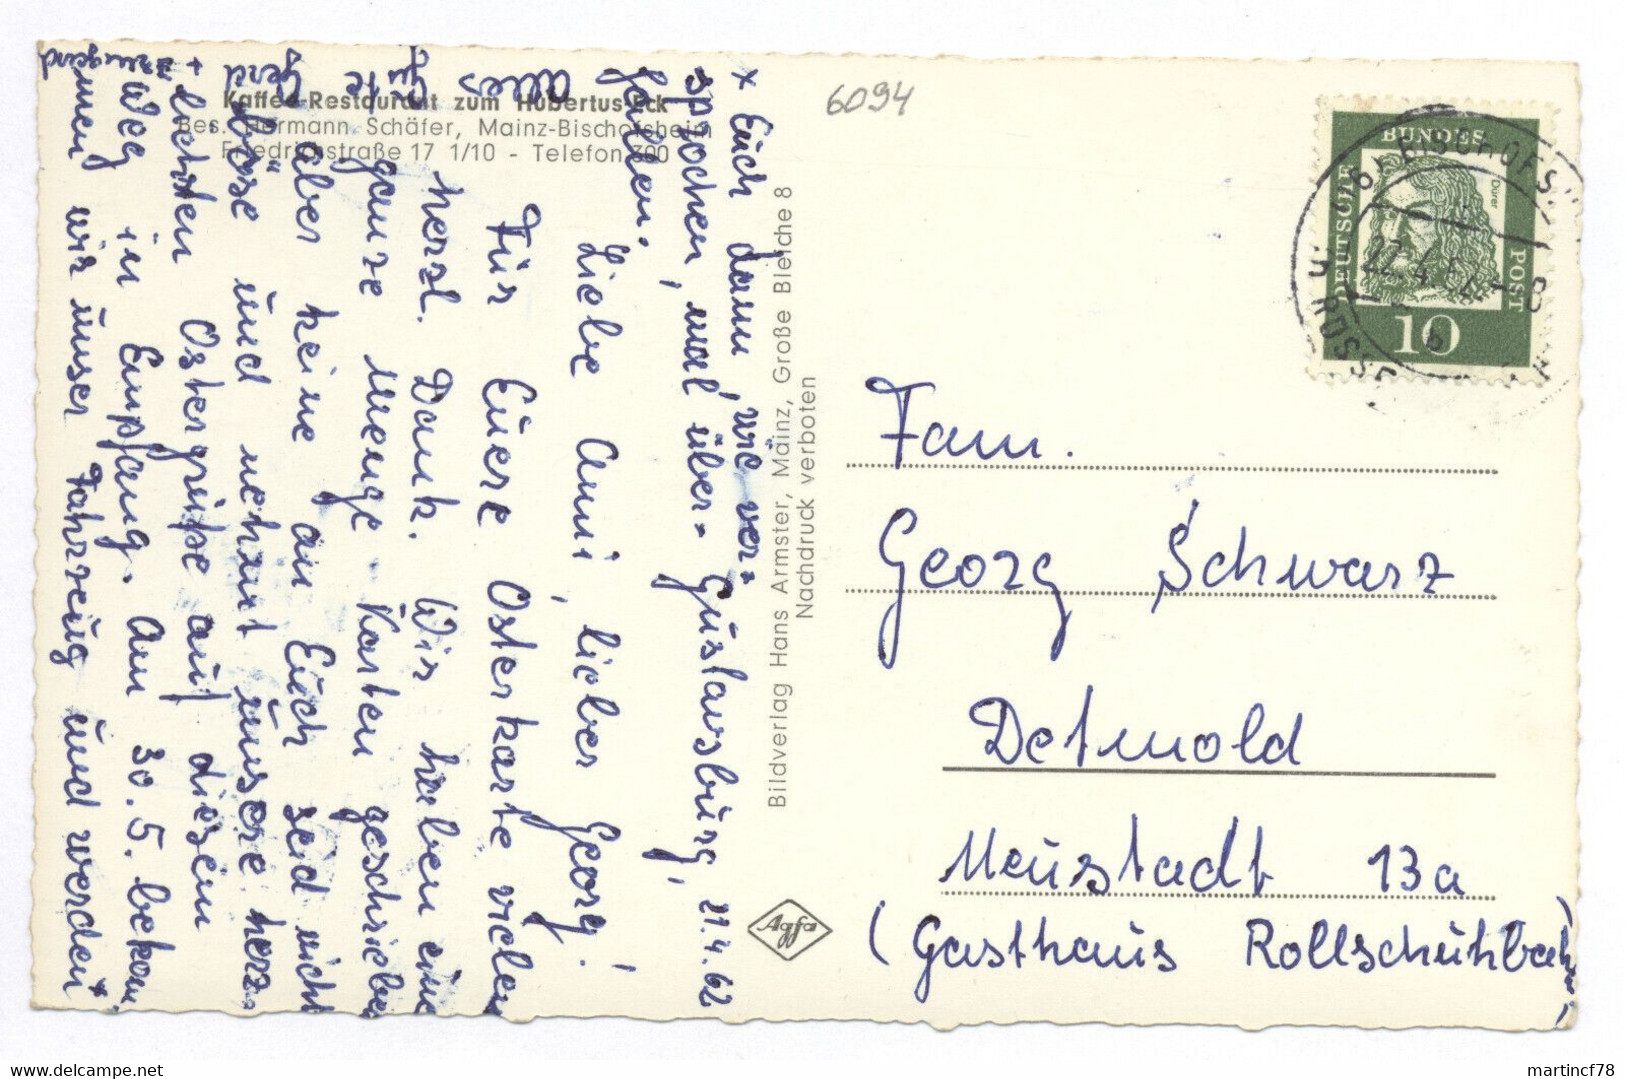 Kaffee-Restaurant zum Hubertus-Eck
Bes. Hermann Schäfer, Mainz-Bischofsheim
Friedrichstraße 17 1/10 - Telefon 300
6094
Gustavsburg, 21.4.62
Liebe Anni, lieber Georg!
Für Eure Osterkarte vielen
herzl. Dank. Wir haben eine
ganze Menge Karten geschrieben
aber keine an Euch seid nicht
„böse" und nehmt unsere herz-
lichsten Ostergrüße auf diesem
Weg in Empfang. Am 30.5. bekom-
men wir unser Fahrzeug und werden *
* Euch dann, wie ver-
sprochen, mal über-
fallen.
alles
Gute
Gerd
+
Bildverlag Hans Armster, Mainz, Große Bleiche 8
Nachdruck verboten
Agfa
DEUTSCHE BUNDESPOST
Dürer
10
22.4.62-8
b
Fam.
Georg Schwarz
Detmold
Neustadt 13a
(Gasthaus Rollschuhbahn)
martincf78